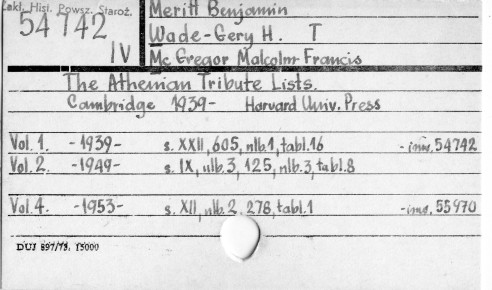 Zakł. Hist. Powsz. Staroż.
54742
IV
Meritt Benjamin
Wade-Gery H. T
Mc Gregor Malcolm-Francis
The Athenian Tribute Lists.
Cambridge 1939- Harvard Univ. Press
Vol. 1. -1939- s. XXII, 605, nlb.1, tabl.16 -inw. 54742
Vol. 2. -1949- s. IX, nlb.3, 125, nlb.3, tabl.8
Vol. 4. -1953- s. XII, nlb.2, 278, tabl.1 -inw. 55970
DUJ 897/73. 15000